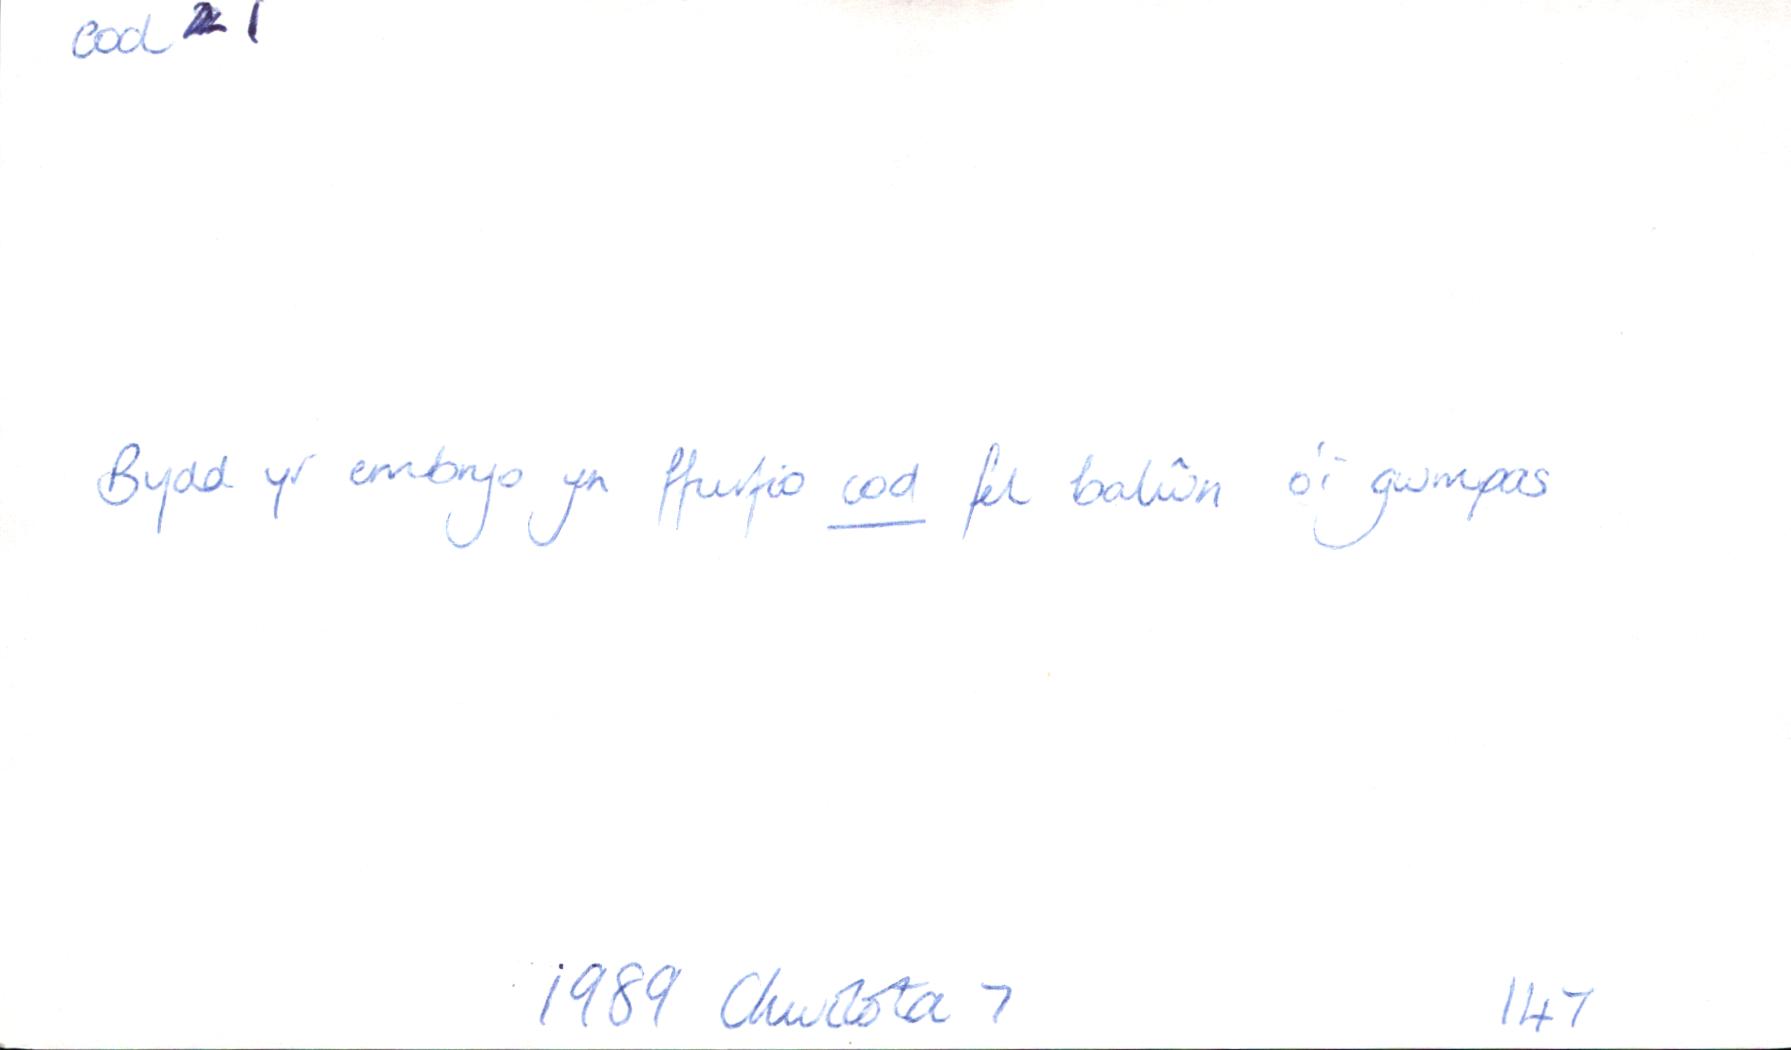 cod 1
Bydd yr embryo yn ffurfio cod fel balŵn o'i gwmpas
1989 Chwilota 7 147